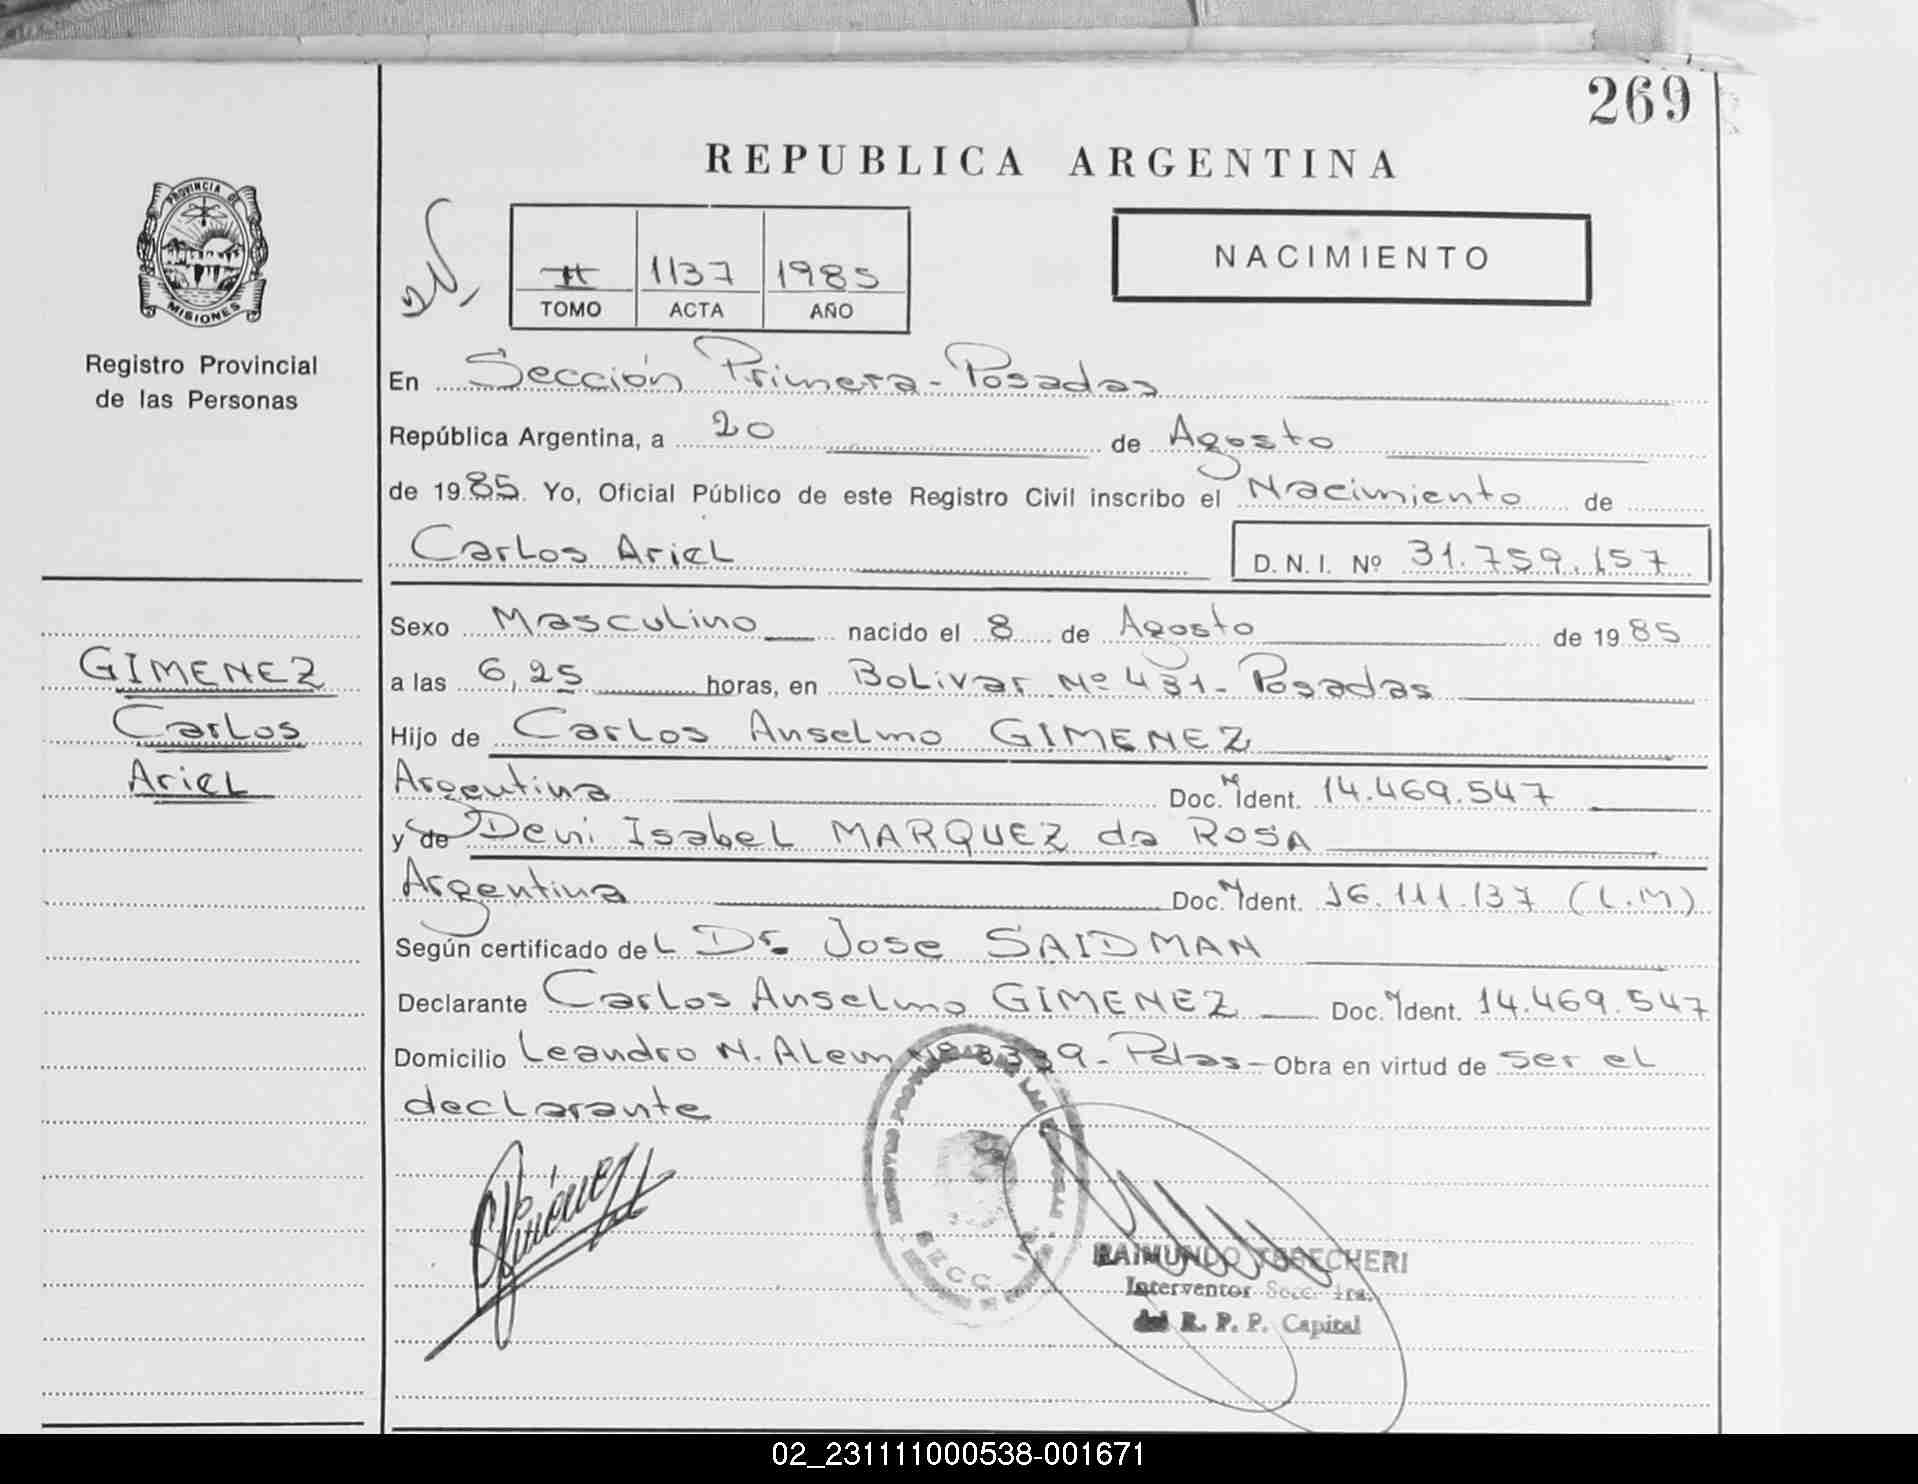 269
REPUBLICA ARGENTINA
PROVINCIA DE
MISIONES
Registro Provincial
de las Personas
II 1137 1985
TOMO ACTA AÑO
NACIMIENTO
En Sección Primera - Posadas
República Argentina, a 20 de Agosto
de 1985. Yo, Oficial Público de este Registro Civil inscribo el Nacimiento de
Carlos Ariel D.N.I. Nº 31.759.157
Sexo Masculino nacido el 8 de Agosto de 1985
GIMENEZ
Carlos
Ariel
a las 6,25 horas, en Bolivar Nº 431 - Posadas
Hijo de Carlos Anselmo GIMENEZ
Argentina Doc. N Ident. 14.469.547
y de Deni Isabel MARQUEZ da ROSA
Argentina Doc. N Ident. 16.111.137 (L.M)
Según certificado del Dr. Jose SAIDMAN
Declarante Carlos Anselmo GIMENEZ Doc. N Ident. 14.469.547
Domicilio Leandro N. Alem Nº 3339 - Pdas - Obra en virtud de ser el
declarante
Giménez
SECC. 1ra
RAIMUNDO
Interventor Secc. 1ra.
del R. P. P. Capital
02_231111000538-001671